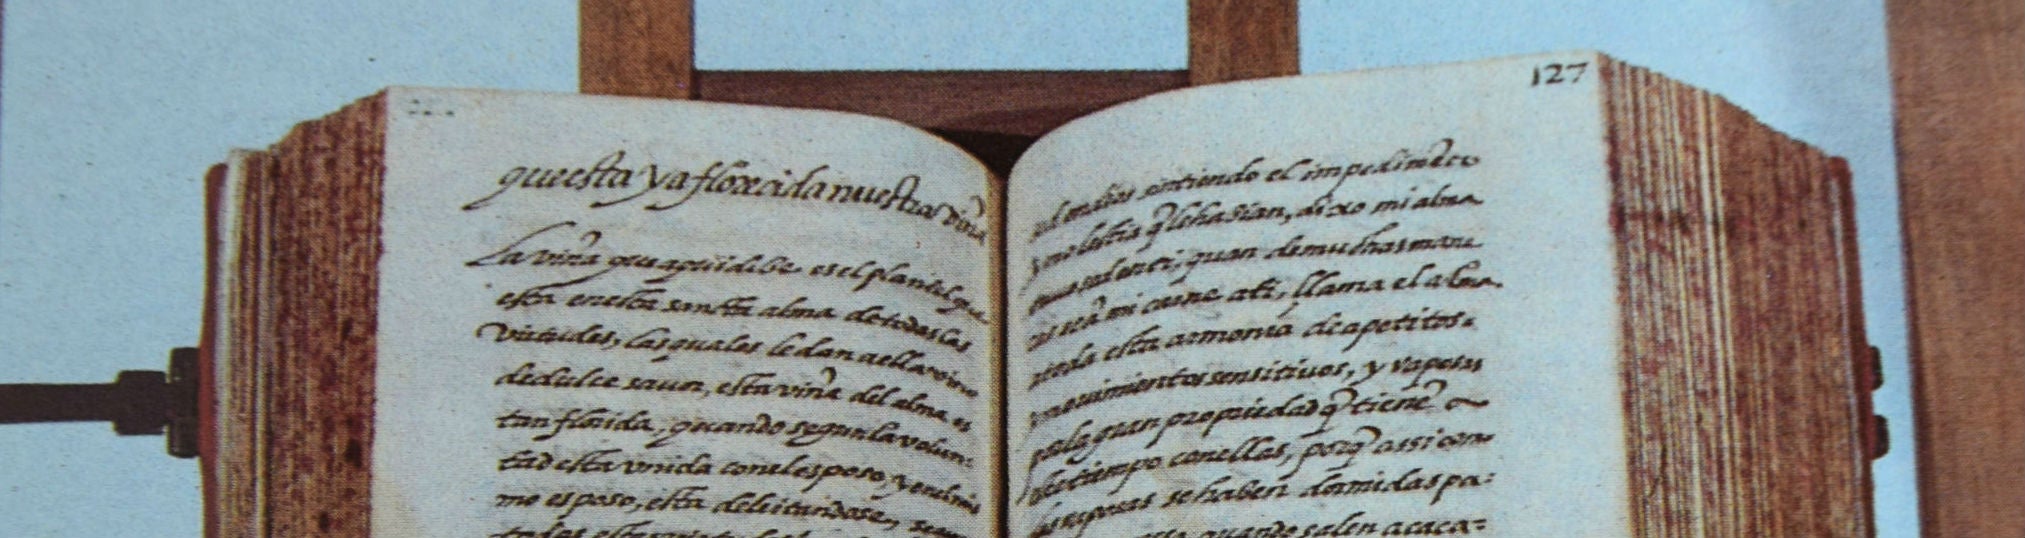 questa ya florecida nuestra viña
La viña que aqui dibe es el plantel que
esta en esta sancta alma de todas las
virtudes, las quales le dan a ella vino
de dulce sauor, esta viña del alma es
tan florida, quando segun la volun-
tad esta vnida con el esposo, y en el mis
mo esposo, esta deleitandose, segun
todas estas
127
sintiendo el impedimẽto
y molestia q̃ le hazian, dixo mi alma
quan de muchas mane
ras seã mi carne a ti, llama el alma
a toda esta armonia de apetitos
y mouimientos sensitiuos, y
por la gran propriedad q̃ tienẽ
de tiempo con ellas, porq̃ assi como
las raposas se hazen dormidas pa:
quando salen a caça: